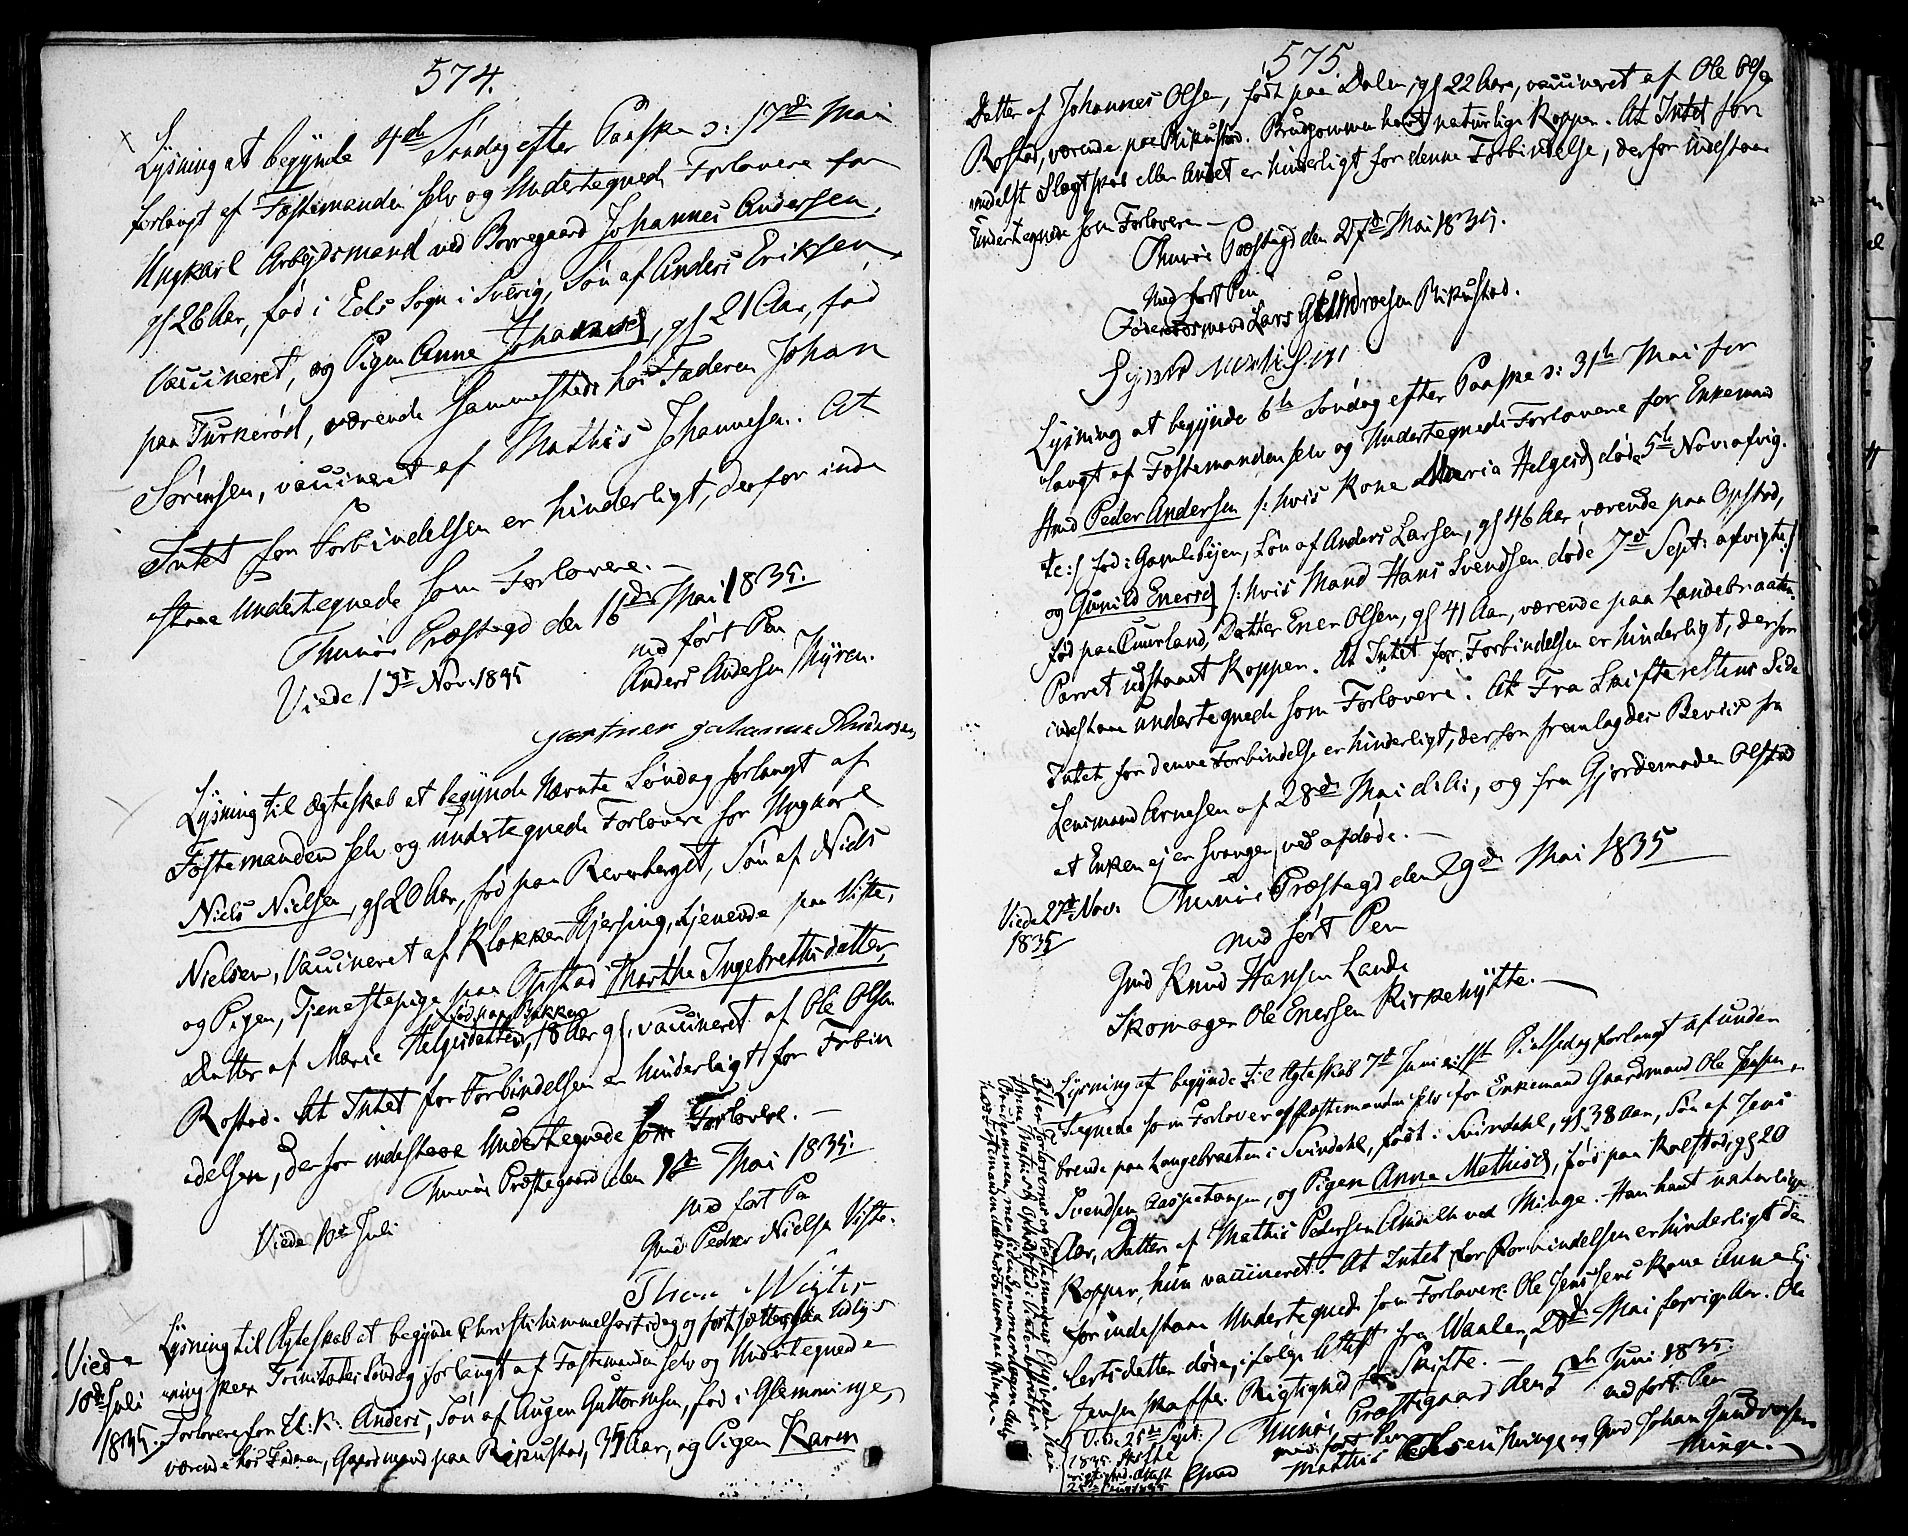 574.
Lysning at begynde 4de Søndag efter Paaske ɔ: 17de Mai
forlangt af Fæstemanden selv og Undertegnede Forlovere for
Ungkarl Arbejdsmand ved Borregaard Johannes Andersen,
gl 26 Aar, fød i Eds Sogn i Sverig, Søn af Anders Eriksen,
Vaccineret, og Pigen Anne Johannesd, gl 21 Aar, fød
paa Turkerød, værende sammesteds hos Faderen Johan
Sørensen, vaccineret af Mathis Johannesen. At
Intet for Forbindelsen er hinderligt, derfor inde
staae Undertegnede som Forlovere. —
Thunøe Præstegd den 16de Mai 1835.
Viede 13de Nov. 1835
med ført Pen
Anders Andersen Thyren.
gartner Johannes Andersen
Lysning til Ægteskab at begynde Nævnte Søndag forlangt af
Fæstemanden selv og undertegnede Forlovere for Ungkarl
Niels Nielsen, gl 20 Aar, fød paa Reverberget, Søn af Niels
Nielsen, Vaccineret af Klokker Hjersing, tjenende paa Viste,
og Pigen, Tjenestepige paa Opstad Marthe Ingebrethsdatter,
fød paa Bakken
Datter af Marie Helgesdatter, 18 Aar gl, vaccineret af Ole Olsen
Rostad. At Intet for Forbindelsen er hinderligt for Forbin
delsen, derfor indestaae Undertegnede som Forlovere. —
Thunøe Præstegaard den Mai 1835.
Viede 10de Juli
med ført Pen
Gmd. Peder Nielsen Viste.
Lysning til Ægteskab at begynde Christi himmelfartsdag og fortsættes
Viede
18de Juli
1835.
ning skeer Trinitatis Søndag forlangt af Fæstemanden selv og Undertegnede
Forlovere for U.K. Anders, Søn af Augen Guttormsen, fød i Glemminge,
værende hos Faderen, Gaardmand paa Rikustad, 35 Aar, og Pigen Karen
575.
Datter af Johannes Olsen, født paa Dalen, gl 22 Aar, vaccineret af Ole Olsen
Rostad, værende paa Rikustad. Brudgommen havt naturlige Kopper. At Intet for
medelst Slægtskab eller Andet er hinderligt for denne Forbindelse, derfor indestaae
Undertegnede som Forlovere —
Thunøe Præstegd den 27de Mai 1835.
med ført Pen
Lars Rikustad.
Lysning at begynde 6te Søndag efter Paaske ɔ: 31te Mai for
langt af Fæstemanden selv og Undertegnede Forlovere for Enkemand
Hmd Peder Andersen /: hvis Kone Maria Helgesd døde 5te Nov. afvig.
te :/ fød i Gamlebyen, Søn af Anders Larsen, gl 46 Aar værende paa Opstad,
og Gunild Enersd /: hvis Mand Hans Svendsen døde 7de Sept: afvigte :/
fød paa Cuurland, Datter Ener Olsen, gl 41 Aar, værende paa Landebraaten
Parret udstaaet Kopper. At Intet for Forbindelsen er hinderligt, derfor
indestaae undertegnede som Forlovere. At Fra Skifterettens Side
Intet for denne Forbindelse er hinderligt, derfor fremlagdes Beviis fra
Lensmand Arnesen af 28de Mai d. A:, og fra Gjordemoder Olstad
at Enken ej er svanger ved afdøde. —
Viede 27de Nov.
1835
Thunøe Præstegd den 29de Mai 1835
med ført Pen
Gmd Knud Hansen Lande
Skomager Ole Enersen Kirkehytte. —
Lysning at begynde til Ægteskab 7de Juni ɔ: 1ste Pintsedag forlangt af unden
tegnede som Forlover og Fæstemanden selv for Enkemand Gaardmand Ole Jensen,
boende paa Langebraaten i Svindahl, født i Svindahl, gl 38 Aar, Søn af Jens
Svendsen Raspetangen, og Pigen Anne Mathisd, fød paa Kalstad, gl 20
Aar, Datter af Mathis Pedersen Andilh ved Minge. Han havt naturlige
Kopper, hun vaccineret. At Intet for Forbindelsen er hinderligt der
for indestaae Undertegnede som Forlovere. Ole Jensens Kone Anne Ej
lertsdatter døde, ifølge Attest fra Waaler, 20de Mai forrige Aar. Ole
Jensen skaffer Rigtighed for Skifte. —
Thunøe Præstegaard den 5te Juni 1835.
Viede 25de Sept.
1835.
med ført Pen
Mathis Pedersen Minge og Gmd Johan Gundersen
Minge. —